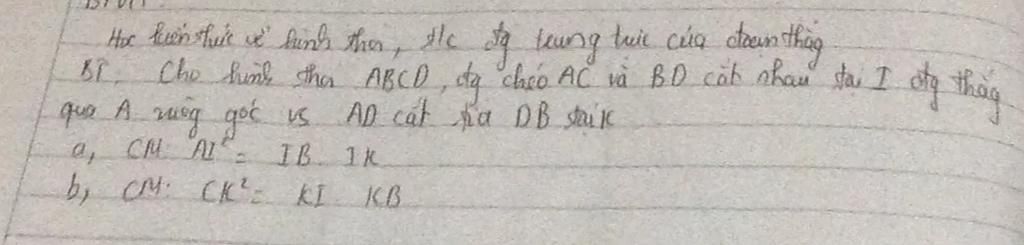 Học kiến thức về hình thoi, t/c đg trung trực của đoạn thẳng
BT. Cho hình thoi ABCD, đg chéo AC và BD cắt nhau tại I đg thẳng
qua A vuông góc vs AD cắt tia DB tại K
a, CM: AI² = IB. IK
b, CM: CK² = KI KB